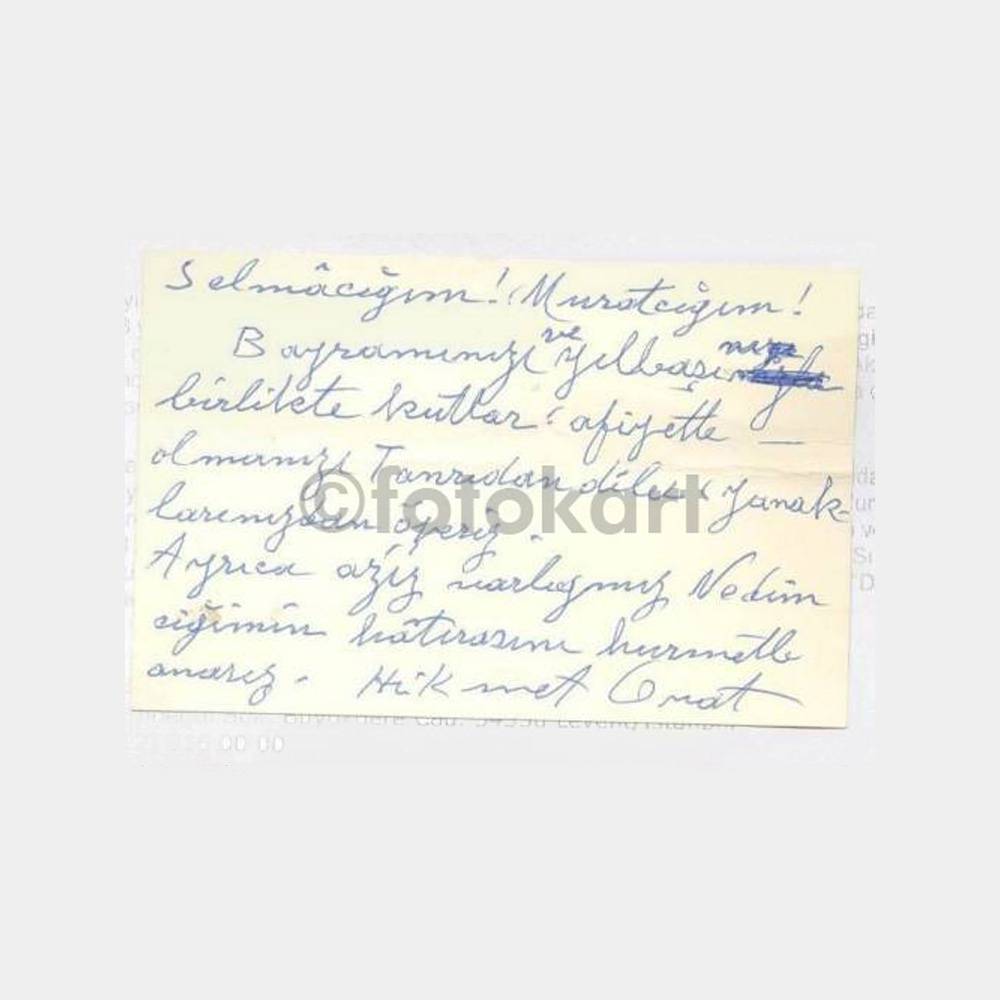 Selmâcığım! Muratcığım!
Bayramınızı ve yılbaşınızı
birlikte kutlar afiyette
olmanızı Tanrıdan diler yanak-
larınızdan öperiz.
Ayrıca aziz varlığımız Nedim
ciğimin hâtırasını hurmetle
anarız. Hikmet Onat
©fotokart
Büyükdere Cad.
00 00